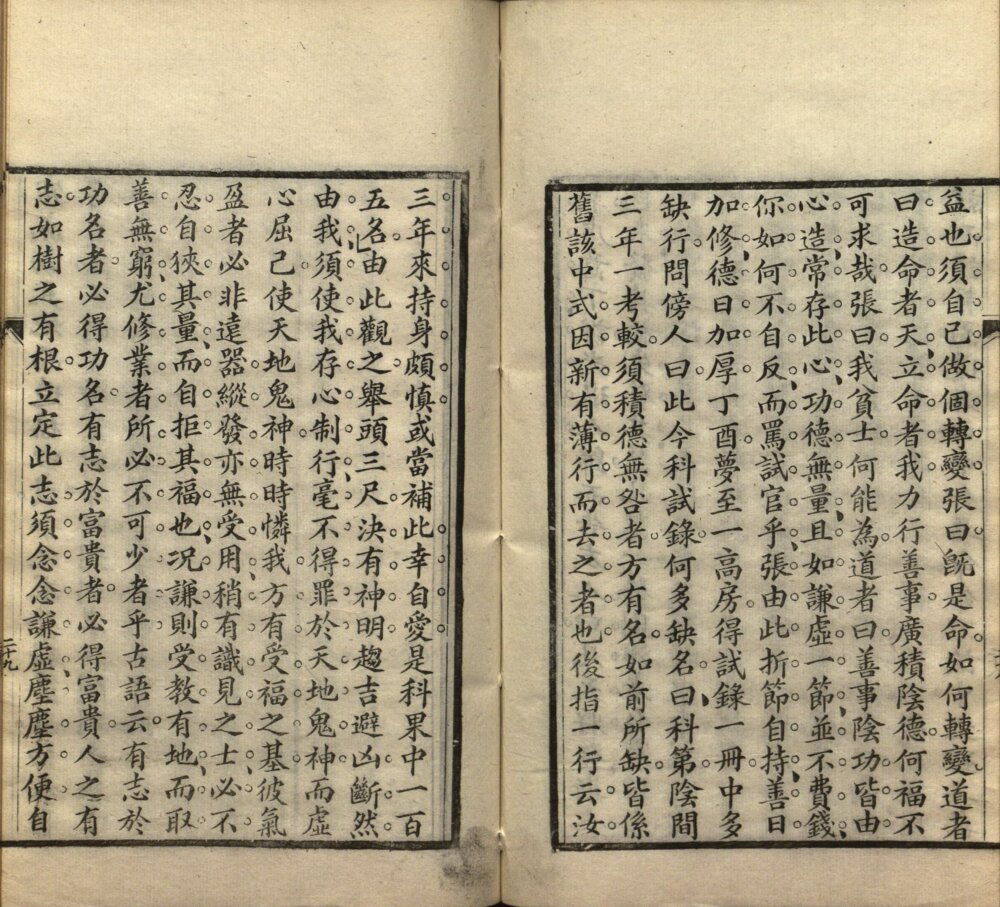 益也須自己做個轉變張曰旣是命如何轉變道者
曰造命者天立命者我力行善事廣積陰德何福不
可求哉張曰我貧士何能為道者曰善事陰功皆由
心造常存此心功德無量且如謙虛一節並不費錢
你如何不自反而罵試官乎張由此折節自持善日
加修德日加厚丁酉夢至一高房得試錄一冊中多
缺行問傍人曰此今科試錄何多缺名曰科第陰間
三年一考較須積德無咎者方有名如前所缺皆係
舊該中式因新有薄行而去之者也後指一行云汝
三年來持身頗慎或當補此幸自愛是科果中一百
五名由此觀之舉頭三尺決有神明趨吉避凶斷然
由我須使我存心制行毫不得罪於天地鬼神而虛
心屈己使天地鬼神時時憐我方有受福之基彼氣
盈者必非遠器縱發亦無受用稍有識見之士必不
忍自狹其量而自拒其福也况謙則受教有地而取
善無窮尤修業者所必不可少者乎古語云有志於
功名者必得功名有志於富貴者必得富貴人之有
志如樹之有根立定此志須念念謙虛塵塵方便自
二十九